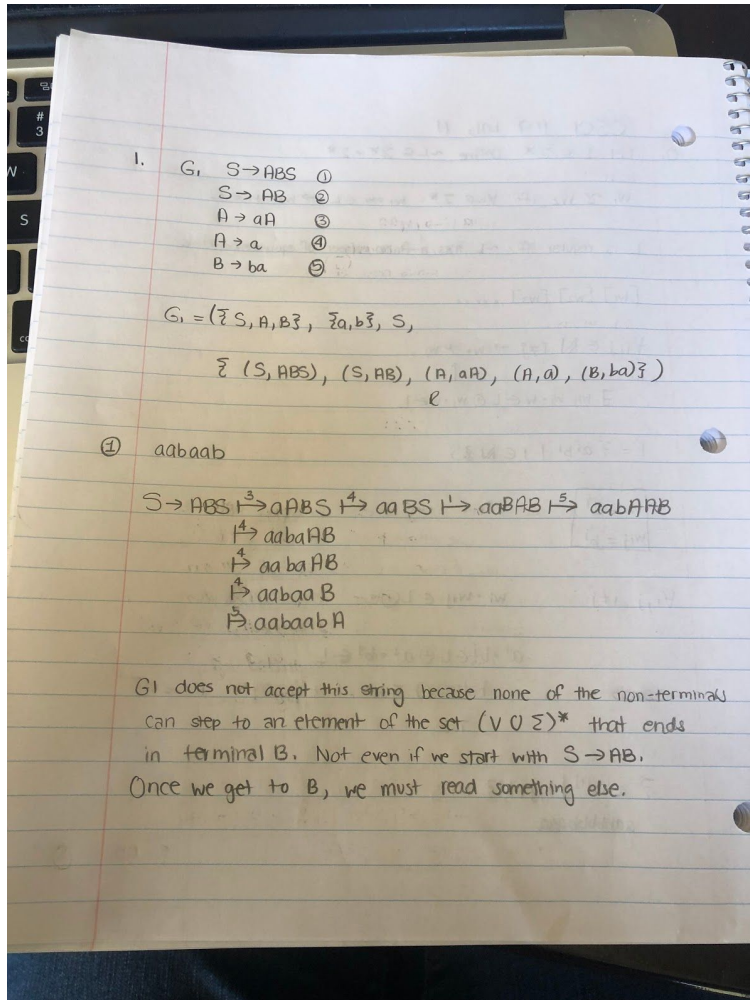 1. G₁ S→ABS ①
S→AB ②
A→aA ③
A→a ④
B→ba ⑤
G₁ = ({S, A, B}, {a, b}, S,
{ (S, ABS), (S, AB), (A, aA), (A, a), (B, ba)} )
R
① aabaab
S→ ABS ↦³ aABS ↦⁴ aaBS ↦¹ aaBAB ↦⁵ aabAAB
↦⁴ aabaAB
↦⁴ aabaAB
↦⁴ aabaaB
↦⁵ aabaabA
G1 does not accept this string because none of the non-terminals
can step to an element of the set (V U Σ)* that ends
in terminal B. Not even if we start with S→AB.
Once we get to B, we must read something else.